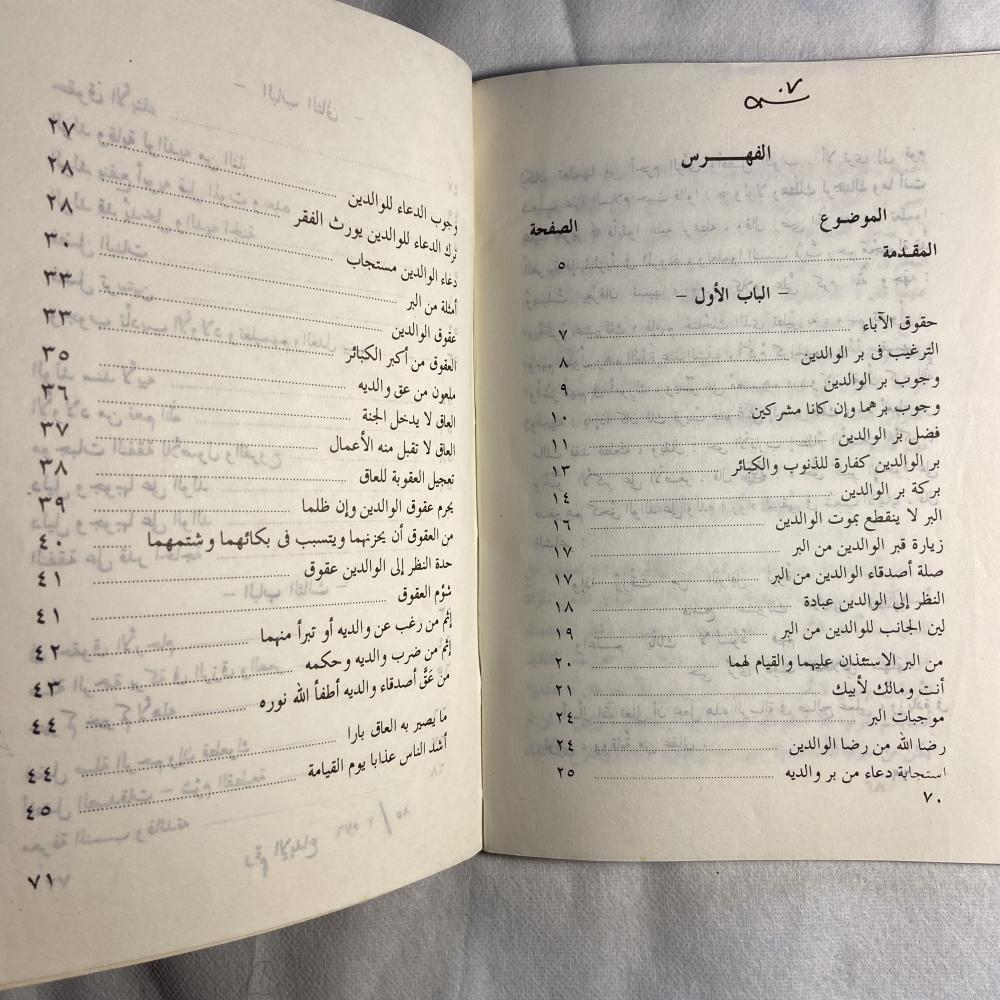 الفهـــرس
الموضوع الصفحة
المقدمة ٥
- الباب الأول -
حقوق الآباء ٧
الترغيب فى بر الوالدين ٨
وجوب بر الوالدين ٩
وجوب برهما وإن كانا مشركين ١٠
فضل بر الوالدين ١١
بر الوالدين كفارة للذنوب والكبائر ١٣
بركة بر الوالدين ١٤
البر لا ينقطع بموت الوالدين ١٦
زيارة قبر الوالدين من البر ١٧
صلة أصدقاء الوالدين من البر ١٧
النظر إلى الوالدين عبادة ١٨
لين الجانب للوالدين من البر ١٩
من البر الاستئذان عليهما والقيام لهما ٢٠
أنت ومالك لأبيك ٢١
موجبات البر ٢٤
رضا الله من رضا الوالدين ٢٤
استجابة دعاء من بر والديه ٢٥
٧٠
وجوب الدعاء للوالدين ٢٧
ترك الدعاء للوالدين يورث الفقر ٢٨
دعاء الوالدين مستجاب ٢٨
أمثلة من البر ٣٠
عقوق الوالدين ٣٣
العقوق من أكبر الكبائر ٣٣
ملعون من عق والديه ٣٥
العاق لا يدخل الجنة ٣٦
العاق لا تقبل منه الأعمال ٣٧
تعجيل العقوبة للعاق ٣٨
يحرم عقوق الوالدين وإن ظلما ٣٩
من العقوق أن يحزنهما ويتسبب فى بكائهما وشتمهما ٤٠
حدة النظر إلى الوالدين عقوق ٤١
شؤم العقوق ٤١
إثم من رغب عن والديه أو تبرأ منهما ٤٢
إثم من ضرب والديه وحكمه ٤٣
من عَقَّ أصدقاء والديه أطفأ الله نوره ٤٤
ما يصير به العاق بارا ٤٤
أشد الناس عذابا يوم القيامة ٤٥
٧١